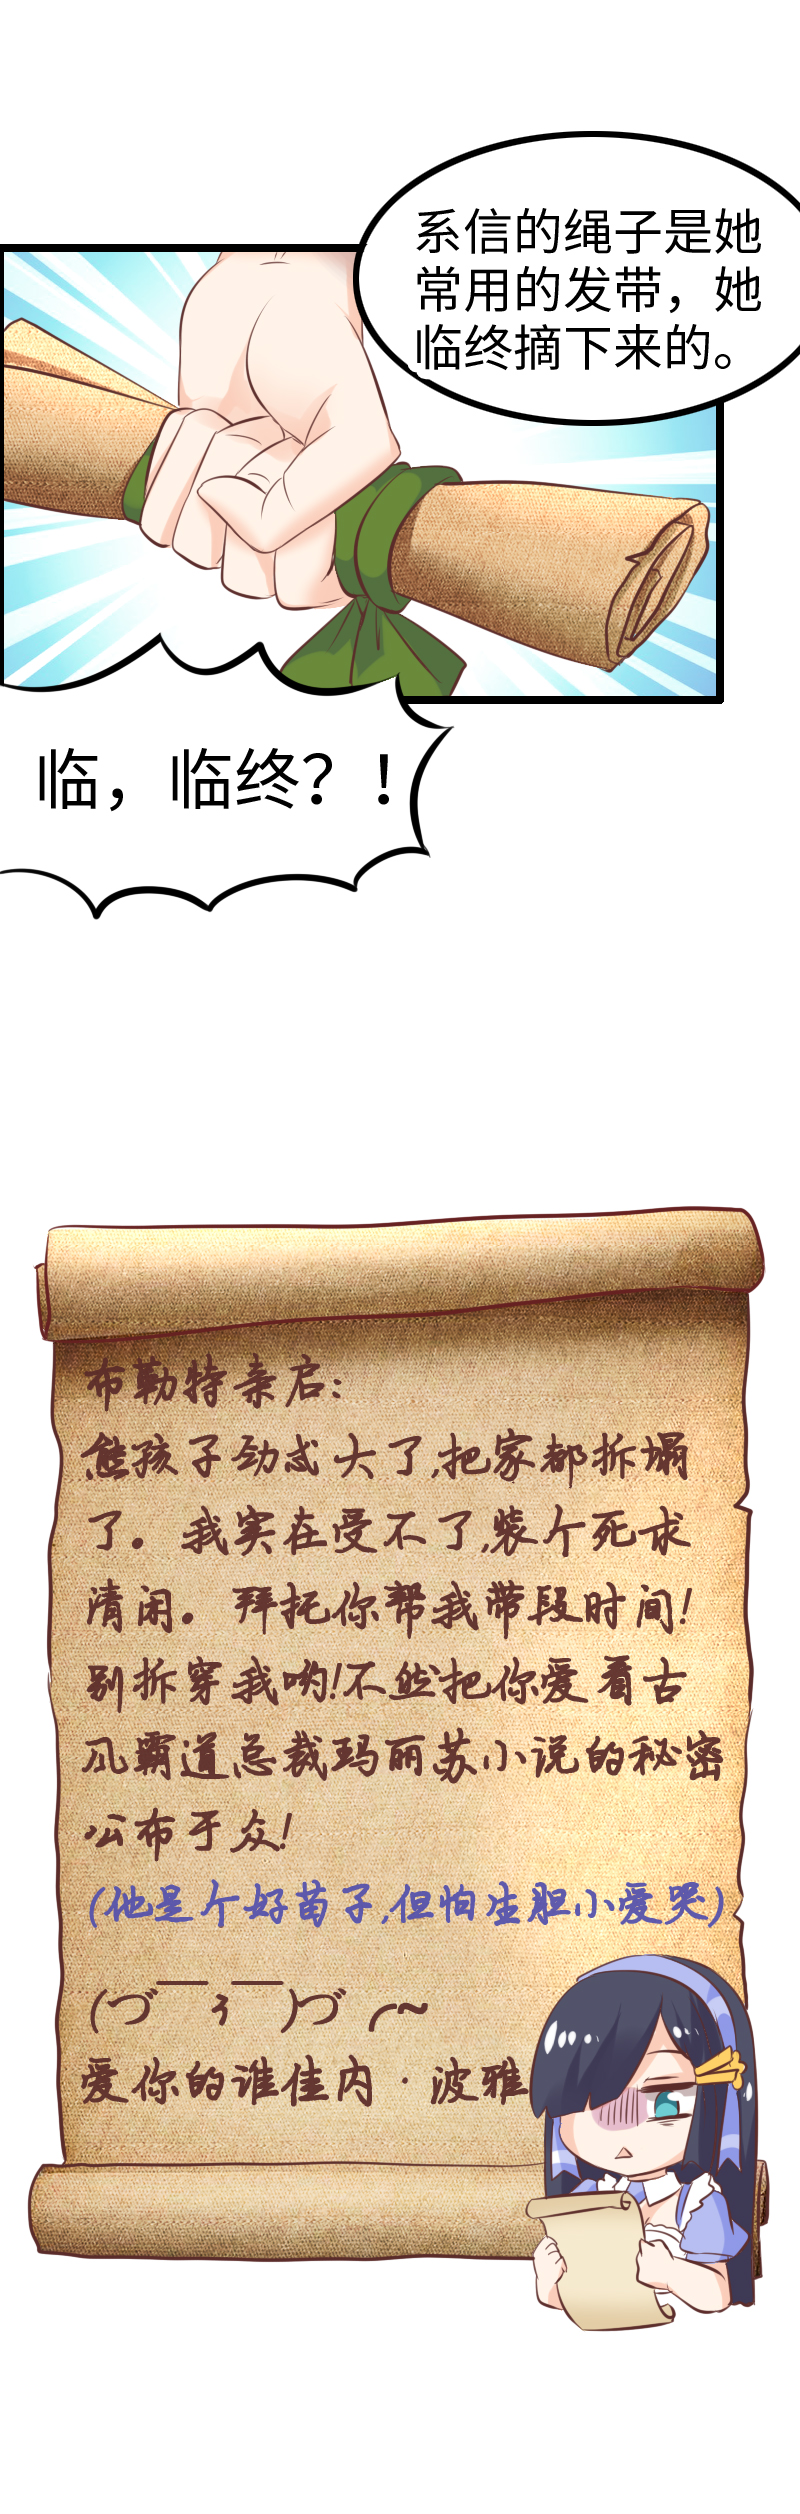 系信的绳子是她
常用的发带，她
临终摘下来的。
临，临终？！
布勒特亲启：
熊孩子劲忒大了,把家都拆塌
了。我实在受不了,装个死求
清闲。拜托你帮我带段时间!
别拆穿我哟!不然把你爱看古
风霸道总裁玛丽苏小说的秘密
公布于众!
(他是个好苗子,但怕生胆小爱哭)
(づ￣ ㇌￣)づ╭~
爱你的谁佳内·波雅